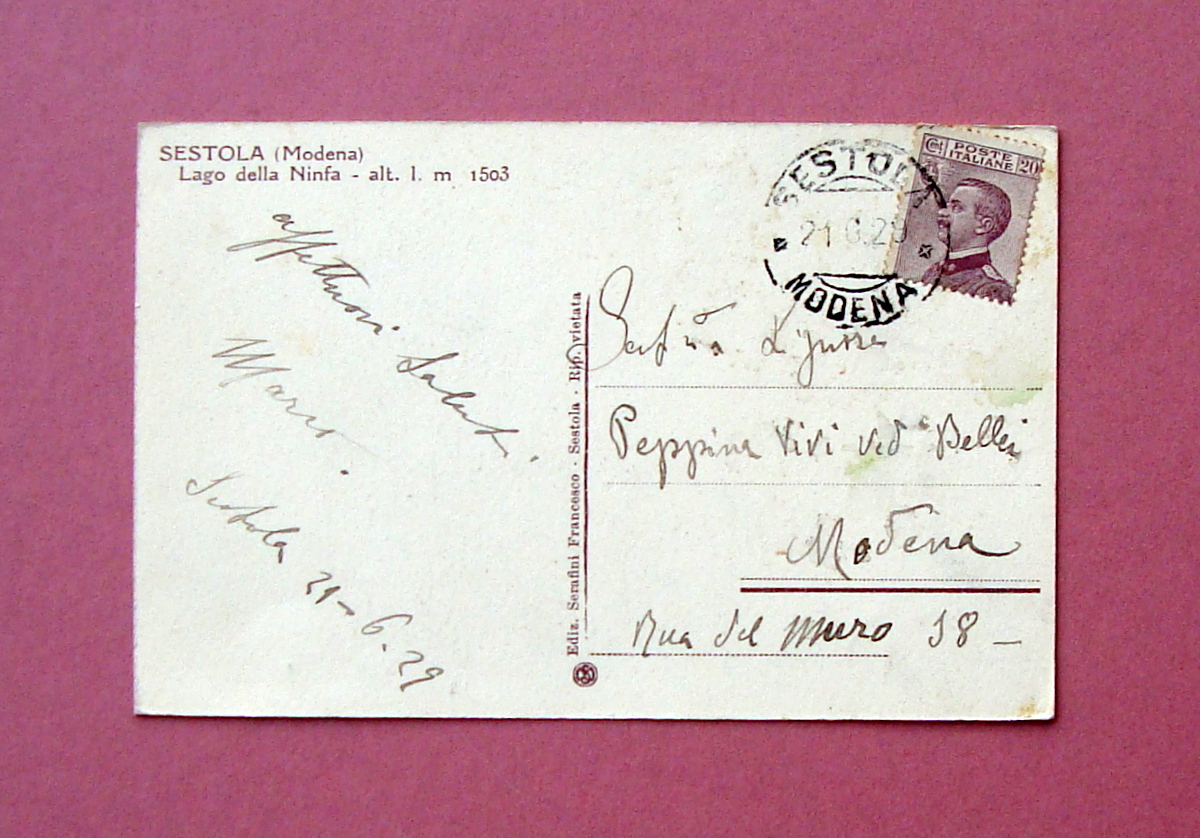 SESTOLA (Modena)
Lago della Ninfa - alt. l. m 1503
affettuosi saluti.
Marco.
Sestola 21-6.29
Ediz. Serafini Francesco - Sestola - Rip. vietata
SESTOLA
21.6.29
MODENA
Ct POSTE ITALIANE 20
Peppina Vivi ved Bellei
Modena
Rua del Muro 38 -